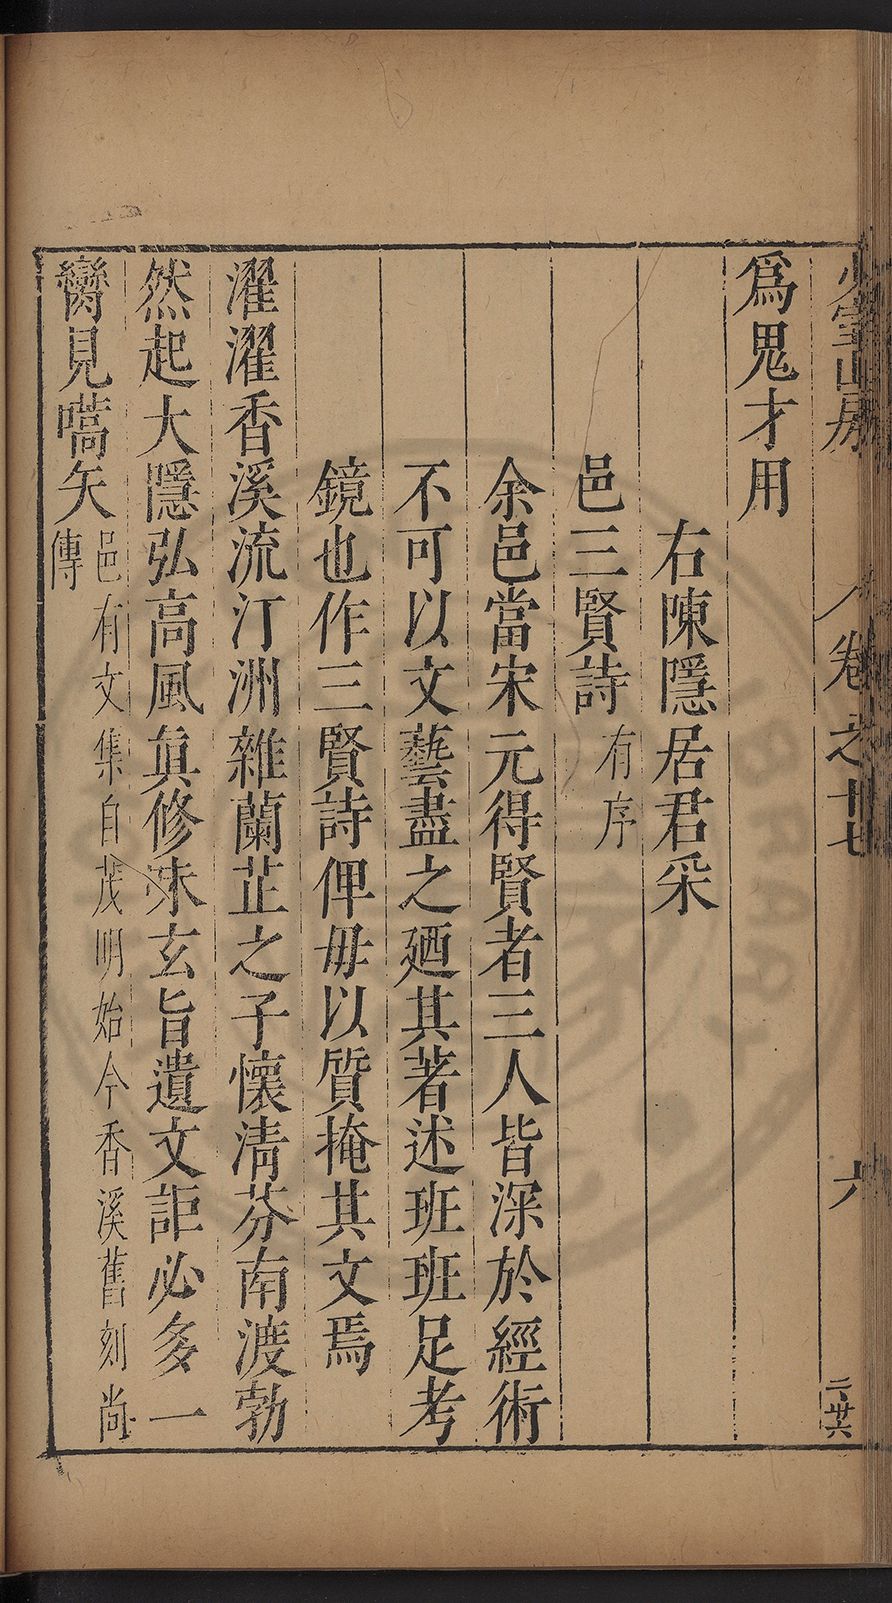 少室山房 卷之十七 六 二百廿六
爲鬼才用
右陳隱居君采
邑三賢詩有序
余邑當宋元得賢者三人皆深於經術
不可以文藝盡之廼其著述班班足考
鏡也作三賢詩俾毋以質掩其文焉
濯濯香溪流汀洲雜蘭芷之子懷清芬南渡勃
然起大隱弘高風眞修味玄旨遺文詎必多一
臠見嚆矢邑有文集自茂明始今香溪舊刻尚
傳